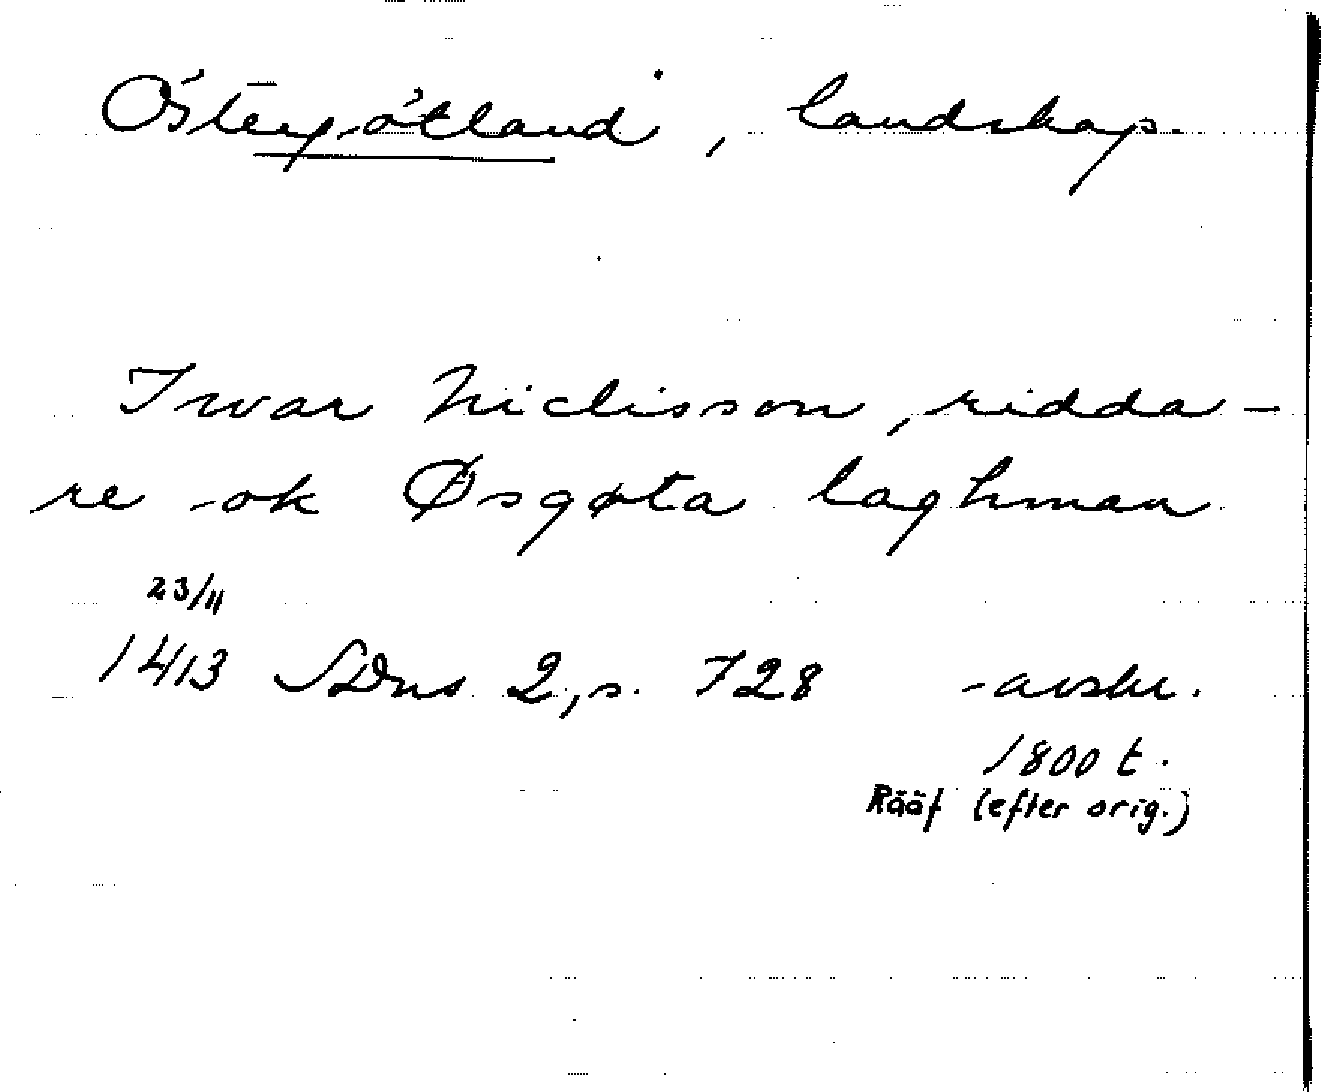 Östergötland, landskap.
Iwar Niclisson, ridda-
re ok Øsgøta laghman
23/11
1413 SDns 2, s. 728 avskr.
1800 t.
Rääf (efter orig.)